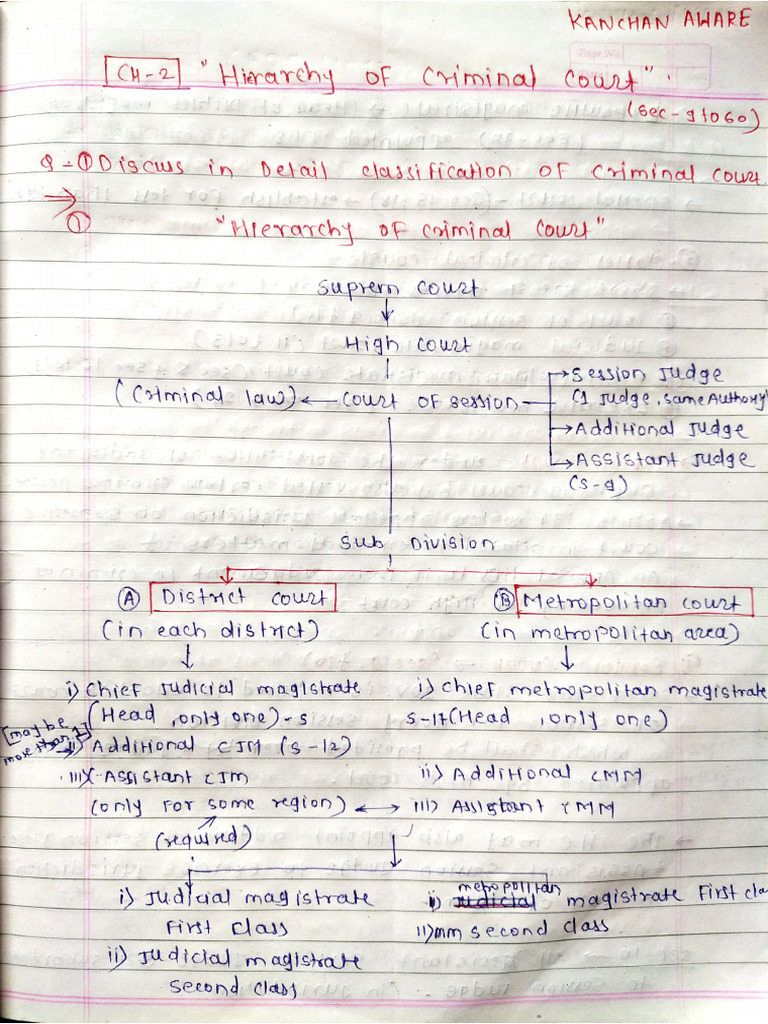 KANCHAN AWARE
Page No.
CH-2 "Hierarchy OF Criminal Court".
(Sec-9 to 60)
Q-① Discuss in Detail classification OF Criminal Court.
① "Hierarchy OF Criminal Court"
Suprem Court.
High Court
(Criminal law) ← Court OF Session → Session Judge
(1 Judge, Same Authority)
→ Additional Judge
→ Assistant Judge
(S-9)
Sub Division
Ⓐ District Court
(in each district)
i) Chief Judicial magistrate
(Head, only one)-S
[may be more than 1]
ii) Additional CJM (S-12)
iii) Assistant CJM
(only for some region)
(required)
Ⓑ Metropolitan Court
(in metropolitan area)
i) Chief metropolitan magistrate
S-17 (Head, only one)
ii) Additional CMM
iii) Assistant CMM
i) Judicial magistrate
First Class
ii) Judicial magistrate
Second Class
metropolitan
i) Judicial magistrate First cla
ii) mm second class.